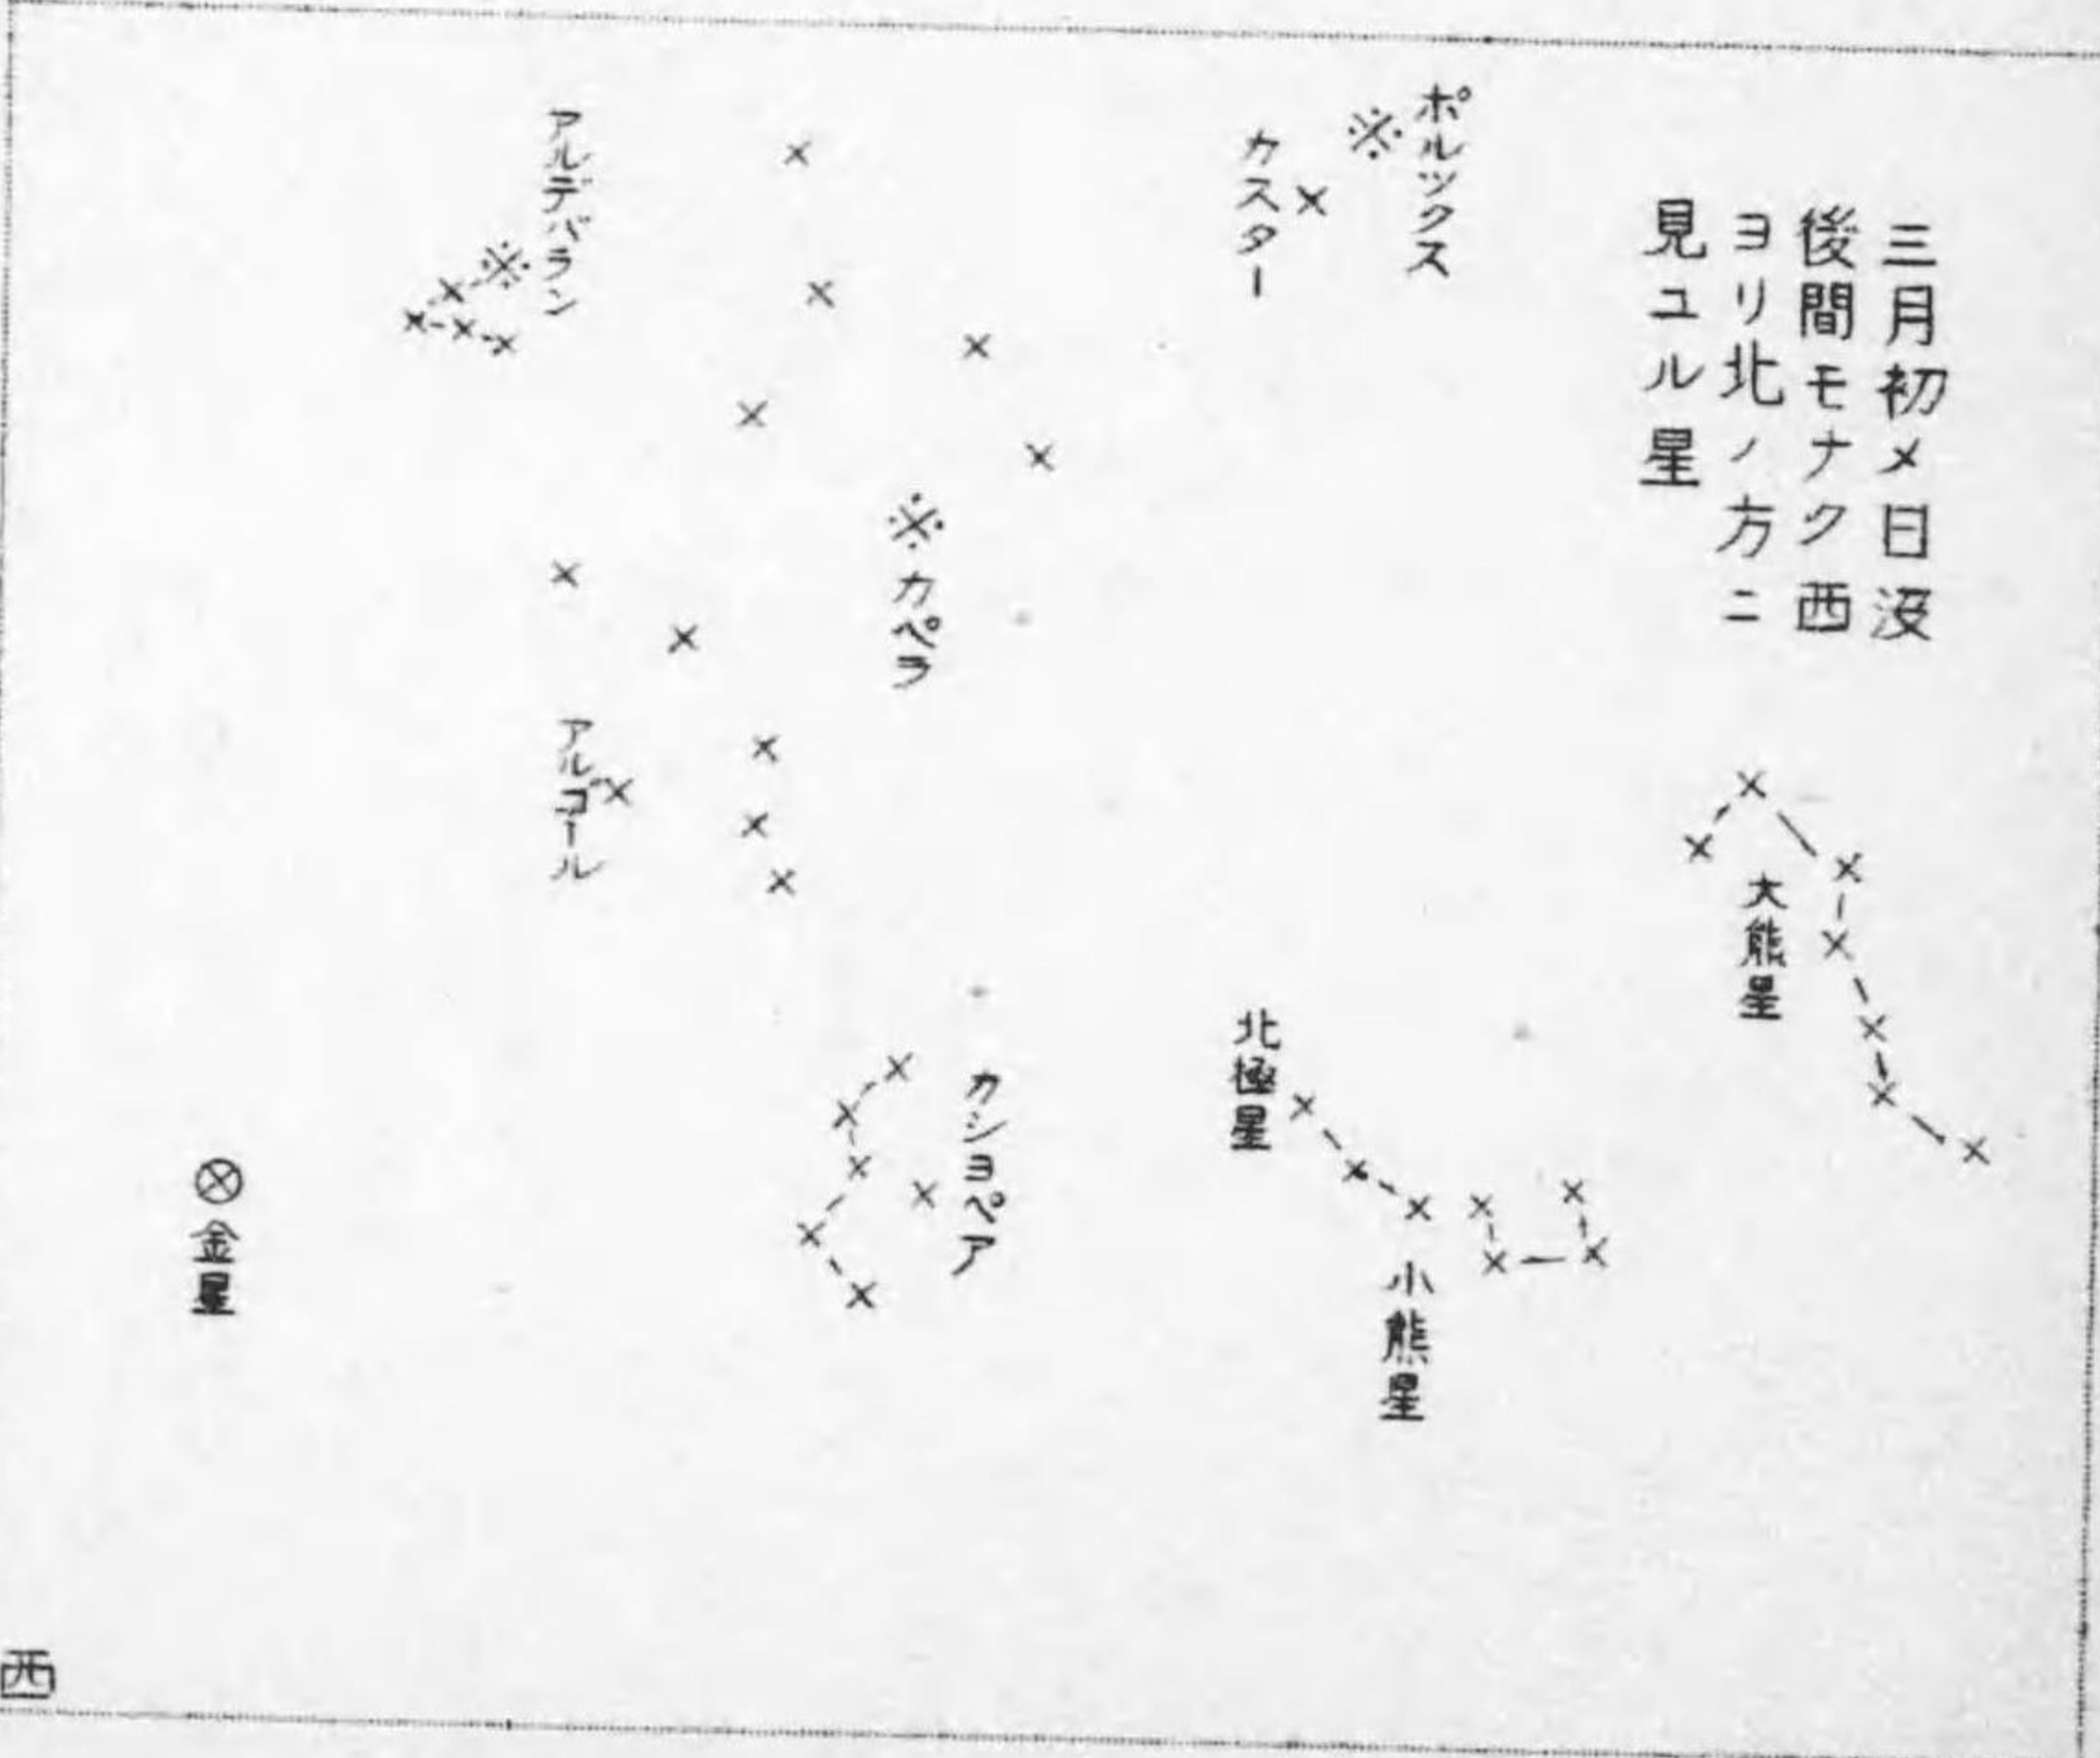 三月初メ日没
後間モナク西
ヨリ北ノ方ニ
見ユル星
ポルックス
カスター
カペラ
アルデバラン
アルゴール
大熊星
北極星
小熊星
カショペア
金星
西